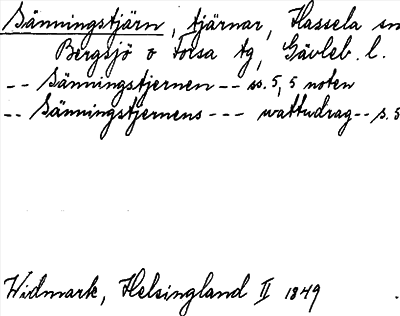 Sänningstjärn, tjärnar, Hassela sn
Bergsjö o Forsa tg, Gävleb. l.
-- Sänningstjernen -- ss. 5, 5 noten
-- Sänningstjernens --- wattudrag -- s. 5
Widmark, Helsingland II 1849